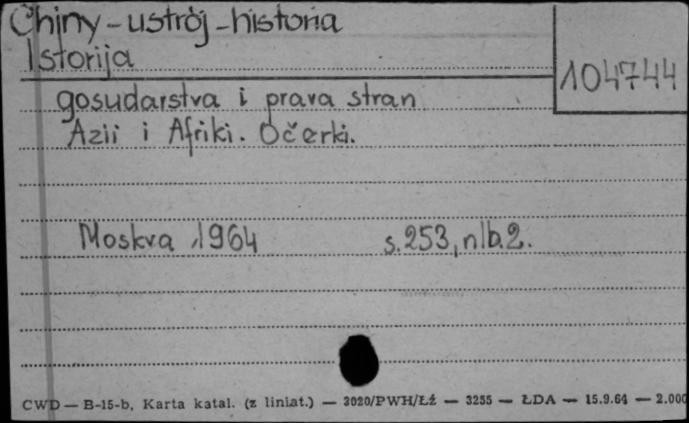 Chiny-ustrój-historia
Istorija
104744
gosudarstva i prava stran
Azii i Afriki. Očerki.
Moskva 1964 s.253, nlb.2.
CWD — B-15-b, Karta katal. (z liniat.) — 3020/PWH/Łź — 3255 — ŁDA — 15.9.64 — 2.000